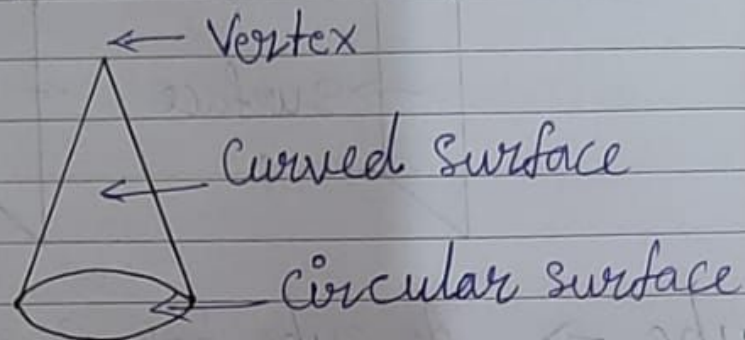 Vertex
Curved surface
Circular surface